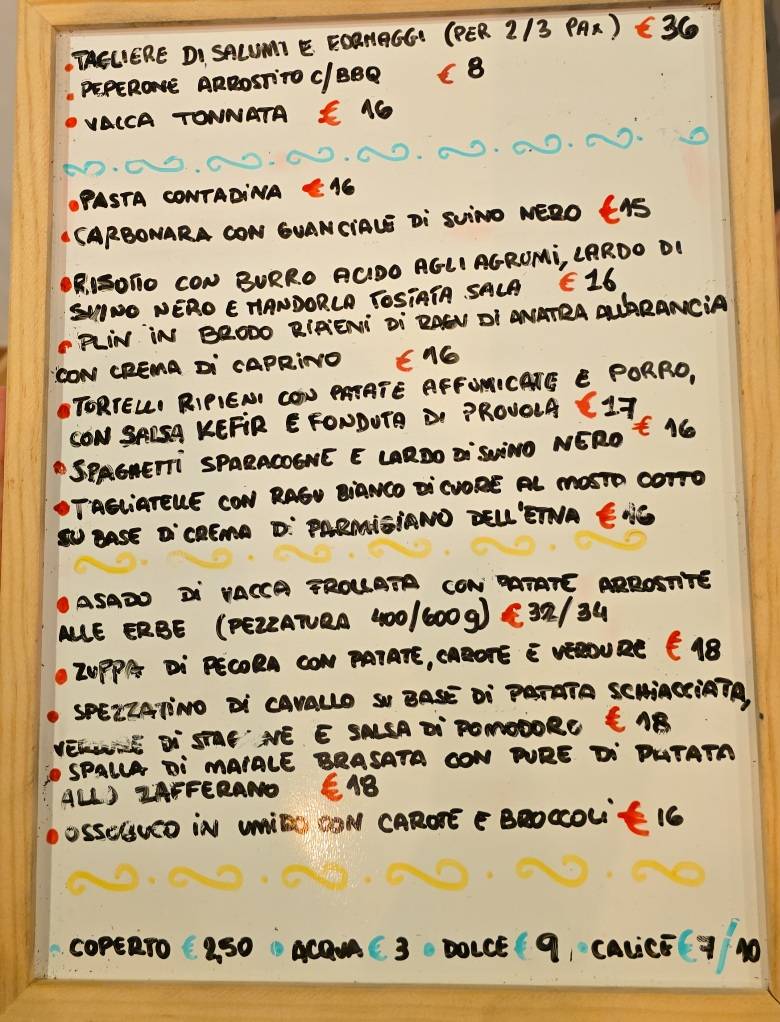 TAGLIERE DI SALUMI E FORMAGGI (PER 2/3 PAX) € 36
PEPERONE ARROSTITO C/BBQ € 8
VACCA TONNATA € 16
PASTA CONTADINA € 16
CARBONARA CON GUANCIALE DI SUINO NERO € 15
RISOTTO CON BURRO ACIDO AGLI AGRUMI, LARDO DI
SUINO NERO E MANDORLA TOSTATA SALA € 16
PLIN IN BRODO RIPIENI DI RAGU DI ANATRA ALL'ARANCIA
CON CREMA DI CAPRINO € 16
TORTELLI RIPIENI CON PATATE AFFUMICATE E PORRO,
CON SALSA KEFIR E FONDUTA DI PROVOLA € 17
SPAGHETTI SPARACOGNE E LARDO DI SUINO NERO € 16
TAGLIATELLE CON RAGU BIANCO DI CUORE AL MOSTO COTTO
SU BASE DI CREMA DI PARMIGIANO DELL'ETNA € 16
ASADO DI VACCA FROLLATA CON PATATE ARROSTITE
ALLE ERBE (PEZZATURA 400/600 g) € 32/34
ZUPPA DI PECORA CON PATATE, CAROTE E VERDURE € 18
SPEZZATINO DI CAVALLO SU BASE DI PATATA SCHIACCIATA,
VERDURE DI STAGIONE E SALSA DI POMODORO € 18
SPALLA DI MAIALE BRASATA CON PURE DI PATATA
ALLO ZAFFERANO € 18
OSSOBUCO IN UMIDO CON CAROTE E BROCCOLI € 16
COPERTO € 2,50 • ACQUA € 3 • DOLCE € 9 • CALICE € 7/10